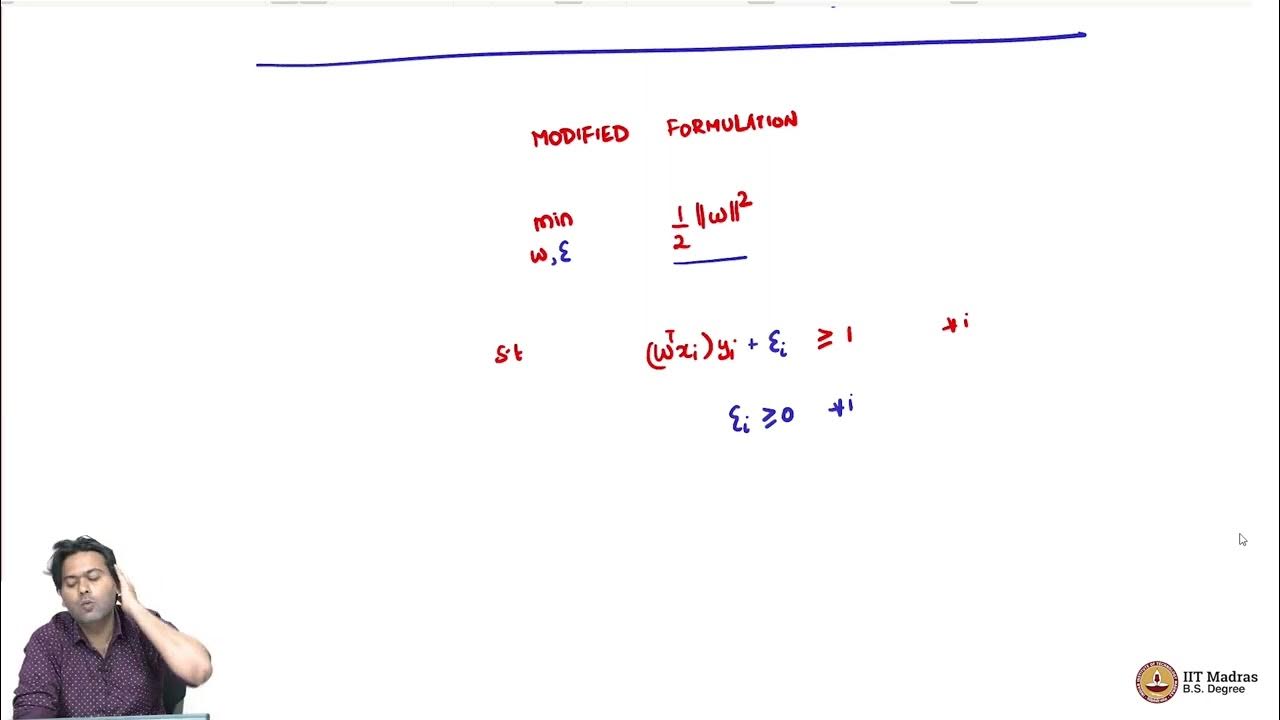 MODIFIED FORMULATION
min 1/2 ||w||²
w, ε
s.t (wᵀxᵢ) yᵢ + εᵢ ≥ 1 ∀i
εᵢ ≥ 0 ∀i
IIT Madras
B.S. Degree